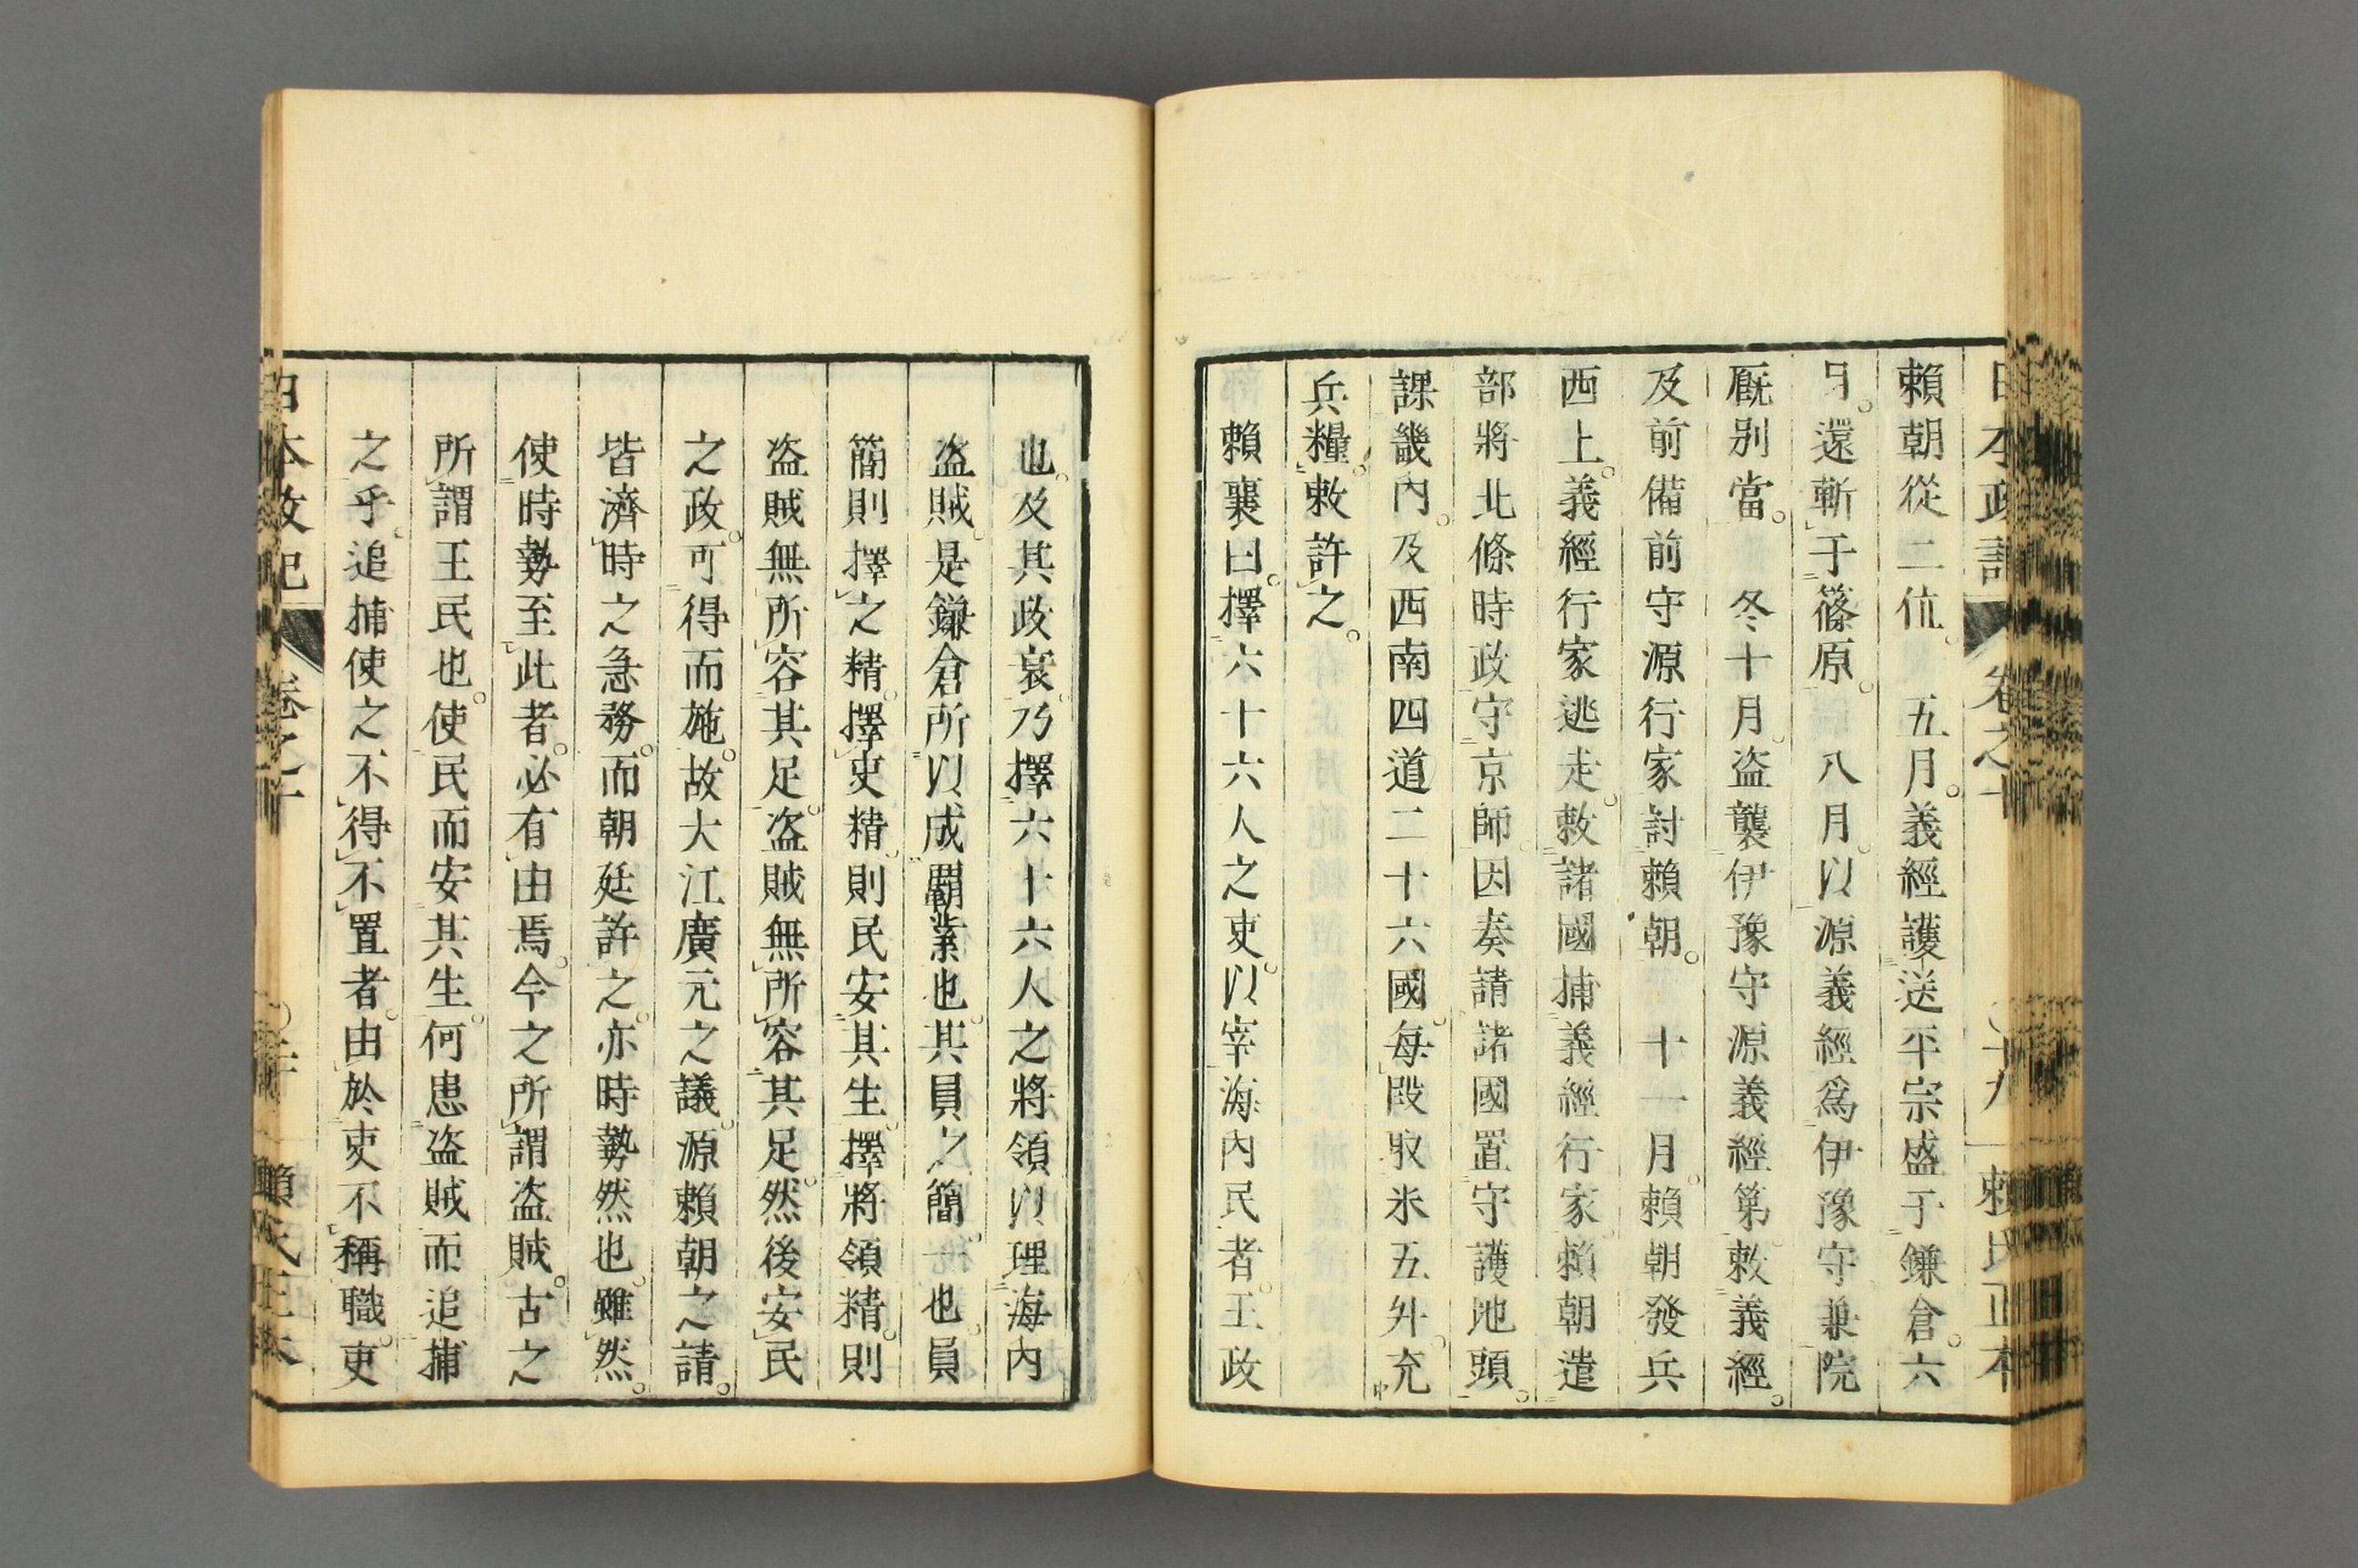 日本政記 卷之十 〇十九 賴氏正本
賴朝從二位。 五月。義經護送平宗盛于鎌倉。六
月。還斬于篠原。 八月。以源義經爲伊豫守兼院
厩別當。 冬十月。盗襲伊豫守源義經第。敕義經。
及前備前守源行家討賴朝。 十一月。賴朝發兵
西上。義經行家逃走。敕諸國捕義經行家。賴朝遣
部將北條時政守京師。因奏請諸國置守護地頭。
課畿內。及西南四道二十六國。每段收米五升。充
兵糧。敕許之。
賴襄曰。擇六十六人之吏。以宰海內民者。王政
也。及其政衰。乃擇六十六人之將領以理海內
盗賊。是鎌倉所以成霸業也。其員之簡一也。員
簡則擇之精。擇吏精。則民安其生。擇將領精。則
盗賊無所容其足。盗賊無所容其足。然後安民
之政。可得而施。故大江廣元之議。源賴朝之請。
皆濟時之急務。而朝廷許之。亦時勢然也。雖然。
使時勢至此者。必有由焉。今之所謂盗賊。古之
所謂王民也。使民而安其生。何患盗賊而追捕
之乎。追捕使之不得不置者。由於吏不稱職。吏
日本政記 卷之十 〇二十 賴氏正本